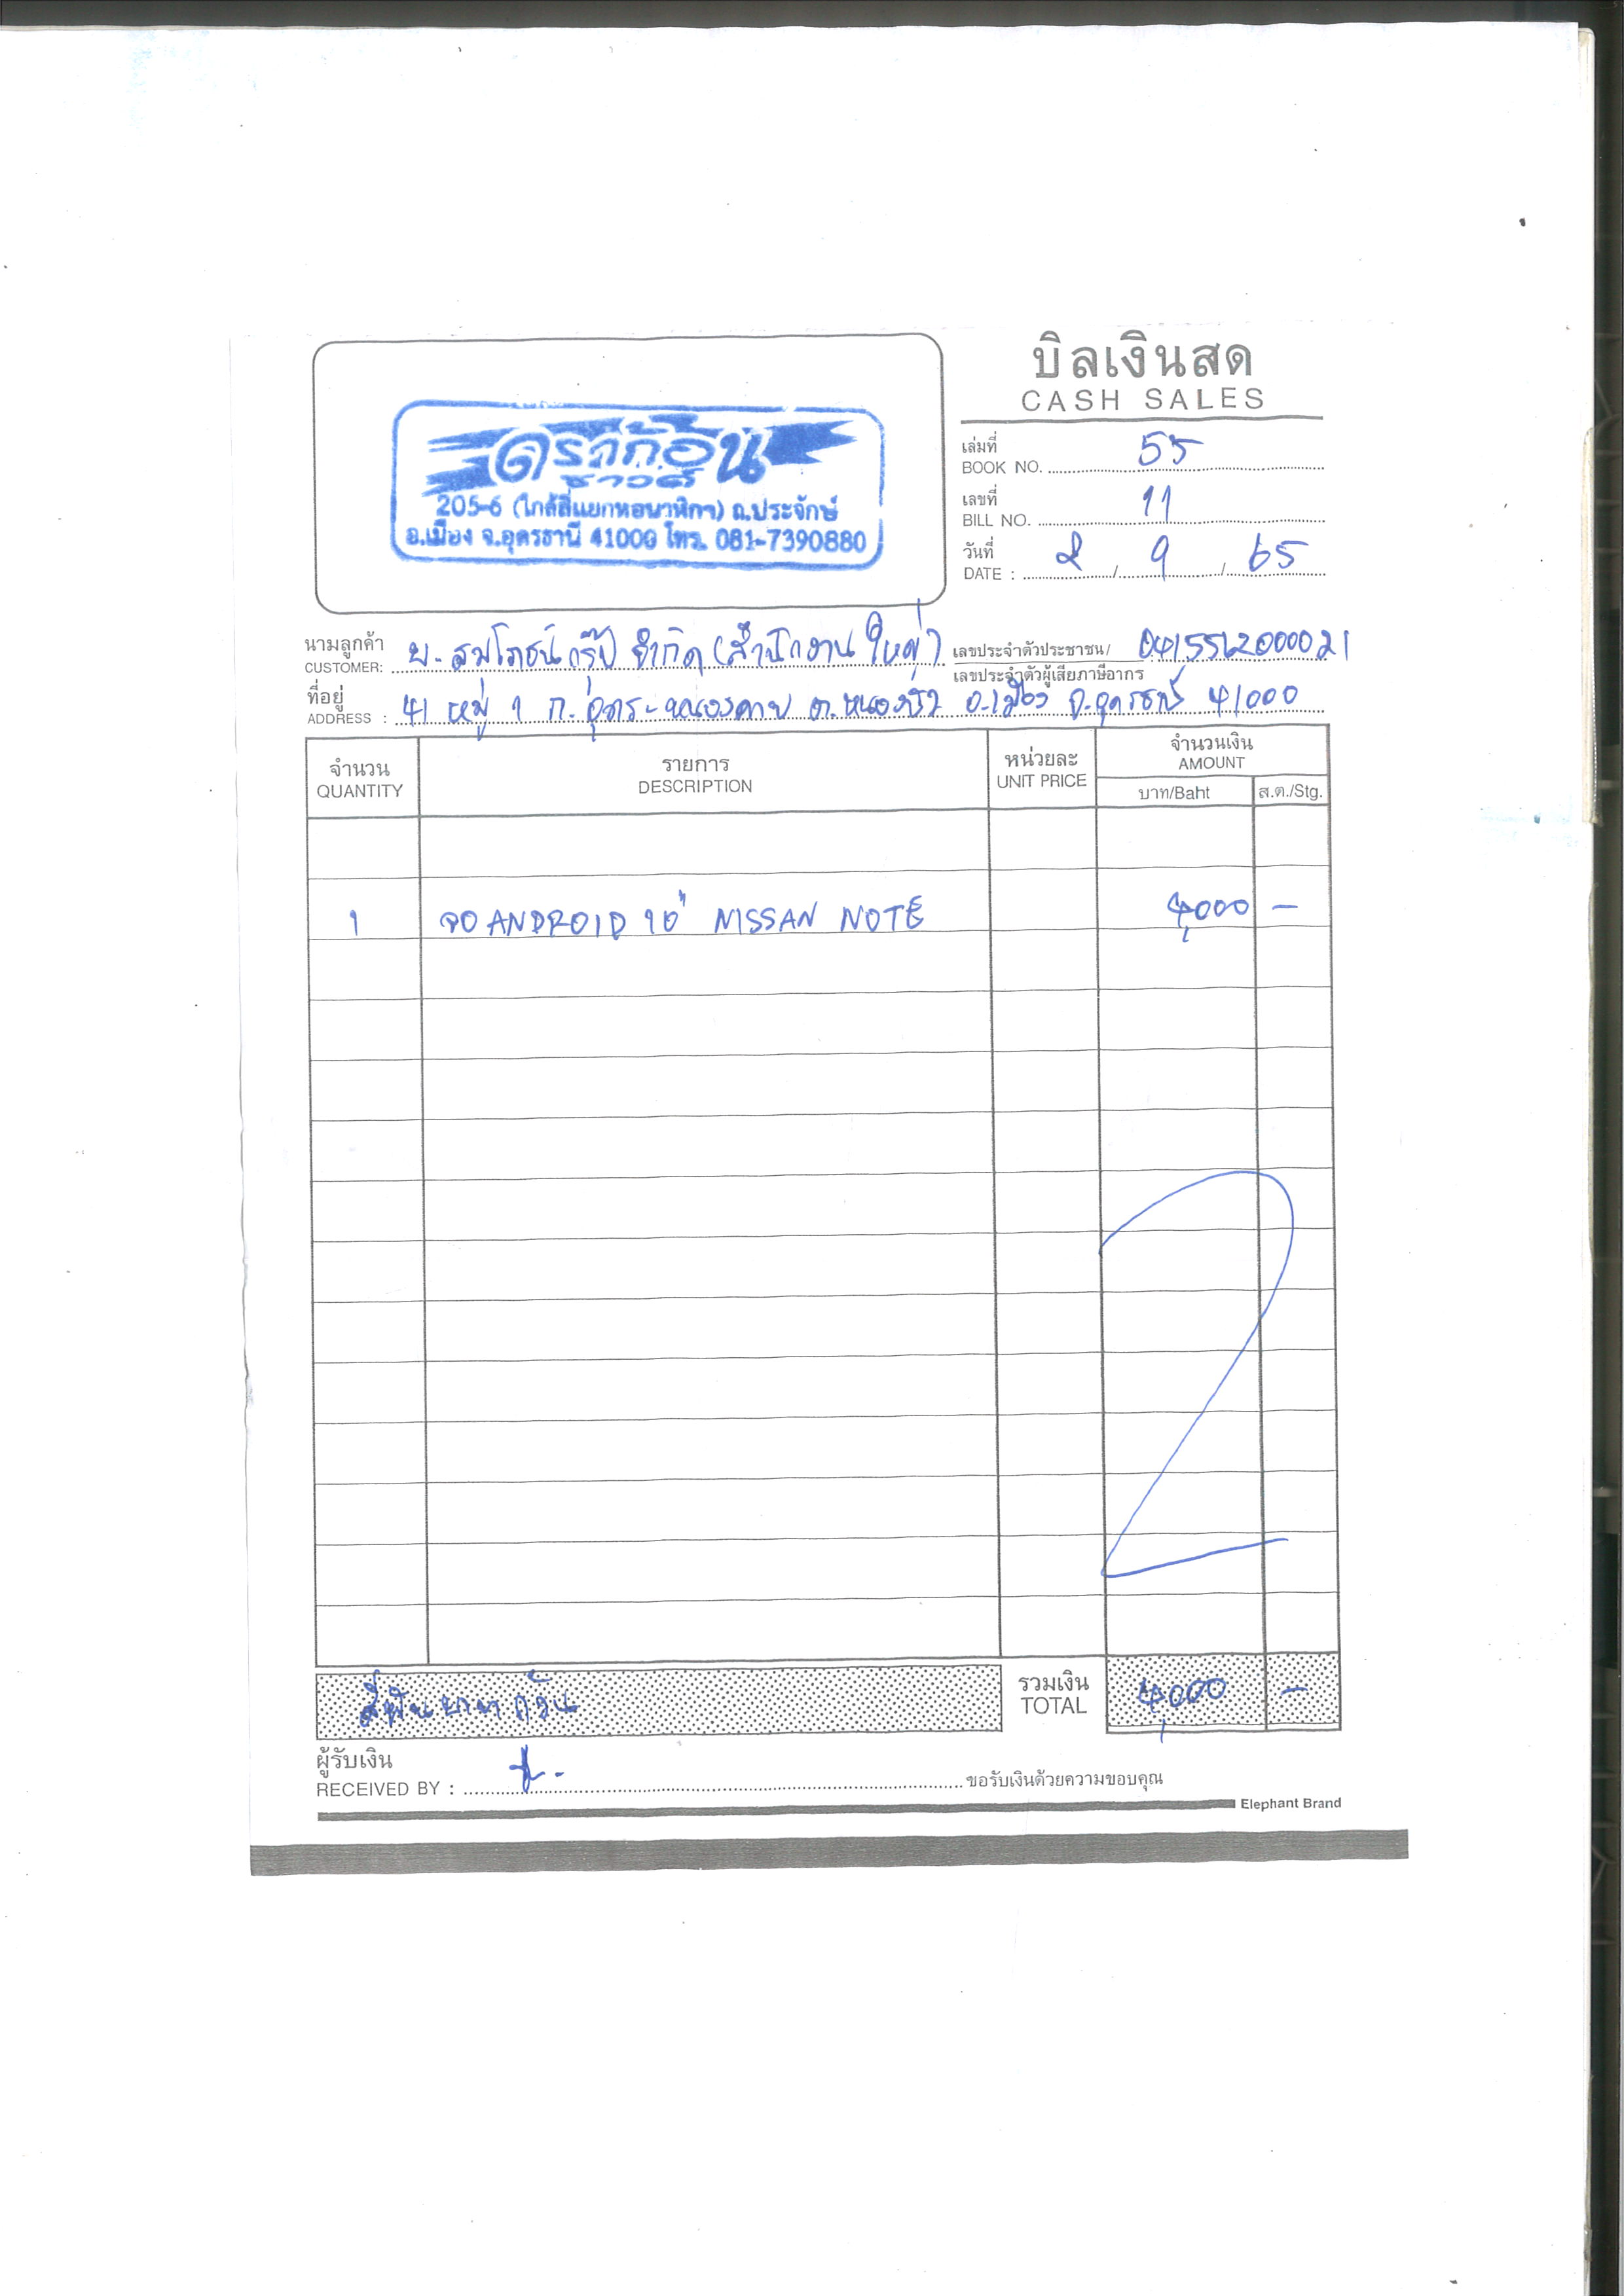 บิลเงินสด
CASH SALES
ดราก้อน
ซาวด์
205-6 (ใกล้สี่แยกหอนาฬิกา) ถ.ประจักษ์
อ.เมือง จ.อุดรธานี 41000 โทร. 081-7390880
เล่มที่
BOOK NO. 55
เลขที่
BILL NO. 11
วันที่
DATE : 2 / 9 / 65
นามลูกค้า
CUSTOMER: บ. สมโภชน์ กรุ๊ป จำกัด (สำนักงานใหญ่) เลขประจำตัวประชาชน/ 0415562000021
เลขประจำตัวผู้เสียภาษีอากร
ที่อยู่
ADDRESS : 41 หมู่ 1 ถ. อุดร-หนองคาย ต.หนองบัว อ.เมือง จ.อุดรธานี 41000
จำนวน
QUANTITY
รายการ
DESCRIPTION
หน่วยละ
UNIT PRICE
จำนวนเงิน
AMOUNT
บาท/Baht ส.ต./Stg.
1 จอ ANDROID 10" NISSAN NOTE 4,000 -
สี่พันบาทถ้วน รวมเงิน 4,000 -
TOTAL
ผู้รับเงิน
RECEIVED BY : ขอรับเงินด้วยความขอบคุณ
Elephant Brand